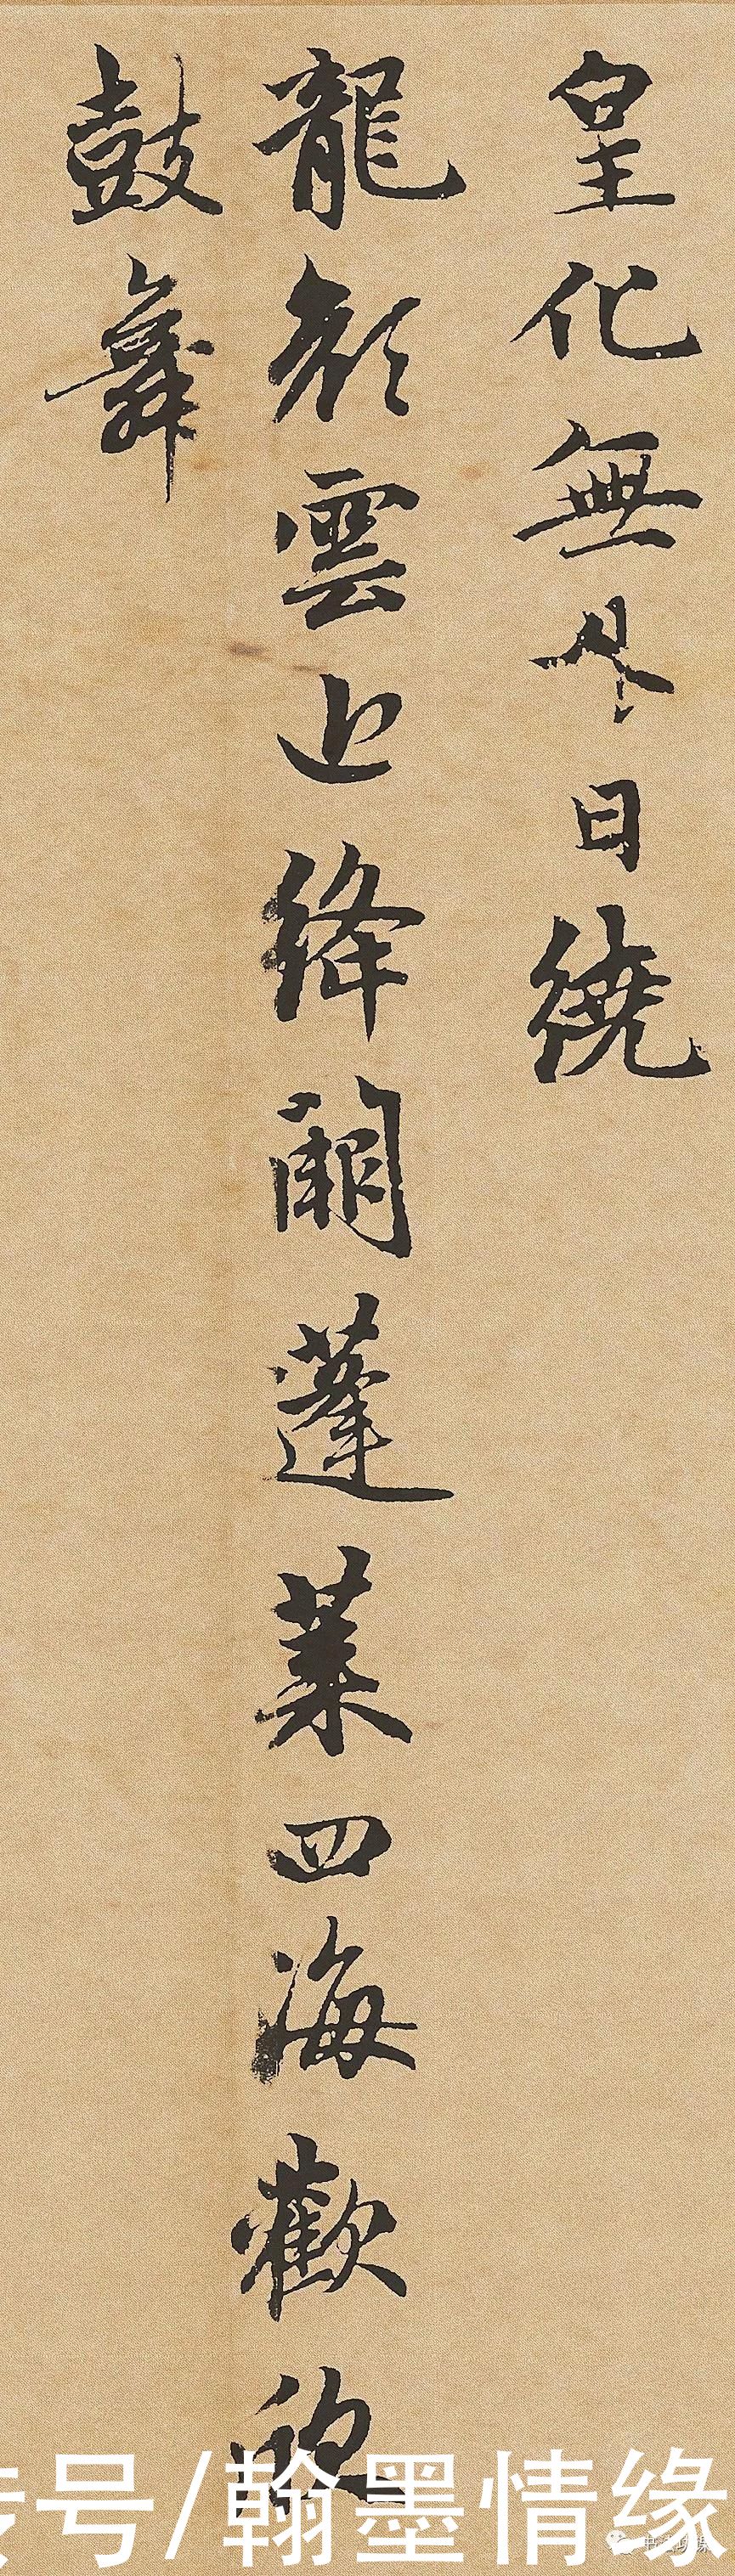 皇化無外日繞
龍顔雲上絳闕蓬萊四海歡欣
鼓舞
号/翰墨情缘